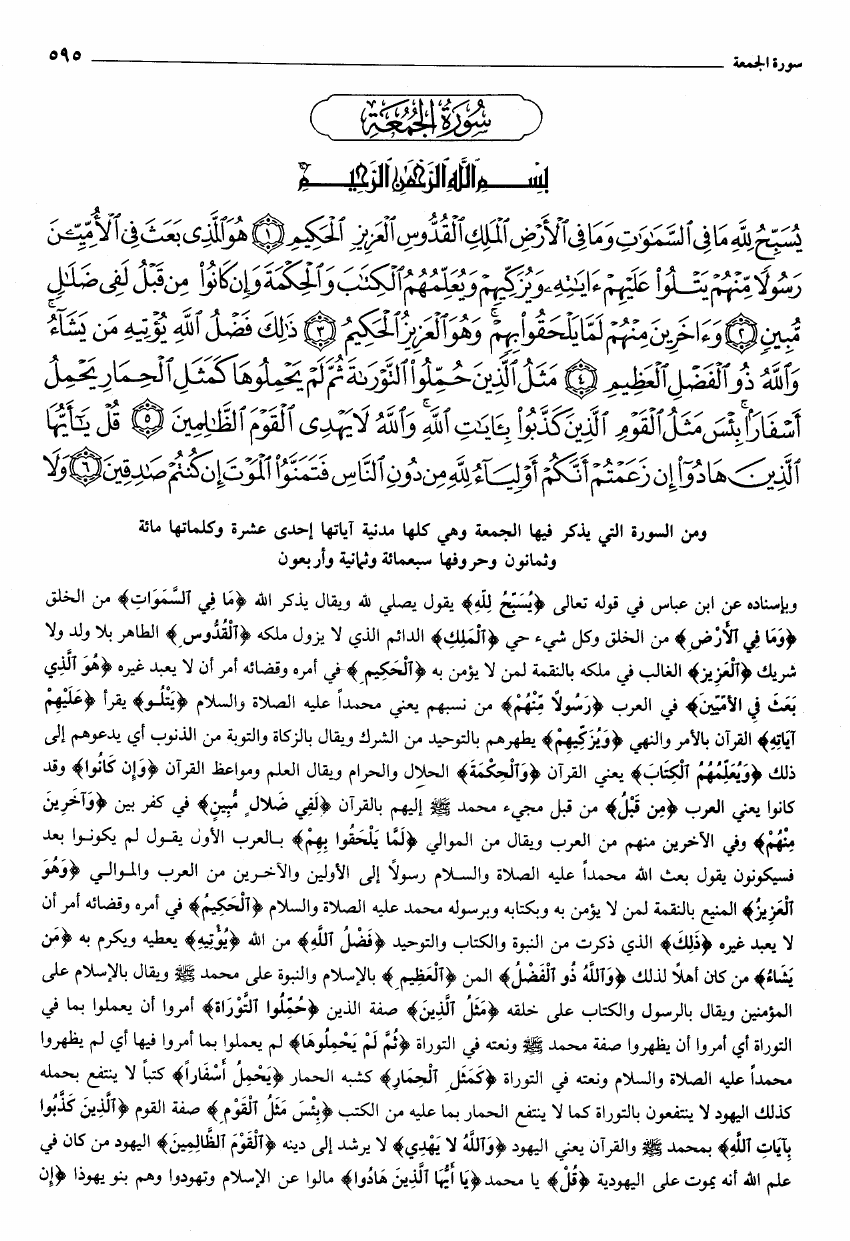 سورة الجمعة ٥٩٥
سُورَةُ الجُمُعَةِ
بِسْمِ اللَّهِ الرَّحْمَٰنِ الرَّحِيمِ
يُسَبِّحُ لِلَّهِ مَا فِي ٱلسَّمَٰوَٰتِ وَمَا فِي ٱلْأَرْضِ ٱلْمَلِكِ ٱلْقُدُّوسِ ٱلْعَزِيزِ ٱلْحَكِيمِ ۝١ هُوَ ٱلَّذِي بَعَثَ فِي ٱلْأُمِّيِّـۧنَ
رَسُولًا مِّنْهُمْ يَتْلُوا۟ عَلَيْهِمْ ءَايَٰتِهِۦ وَيُزَكِّيهِمْ وَيُعَلِّمُهُمُ ٱلْكِتَٰبَ وَٱلْحِكْمَةَ وَإِن كَانُوا۟ مِن قَبْلُ لَفِي ضَلَٰلٍ
مُّبِينٍ ۝٢ وَءَاخَرِينَ مِنْهُمْ لَمَّا يَلْحَقُوا۟ بِهِمْ ۚ وَهُوَ ٱلْعَزِيزُ ٱلْحَكِيمُ ۝٣ ذَٰلِكَ فَضْلُ ٱللَّهِ يُؤْتِيهِ مَن يَشَآءُ ۚ
وَٱللَّهُ ذُو ٱلْفَضْلِ ٱلْعَظِيمِ ۝٤ مَثَلُ ٱلَّذِينَ حُمِّلُوا۟ ٱلتَّوْرَىٰةَ ثُمَّ لَمْ يَحْمِلُوهَا كَمَثَلِ ٱلْحِمَارِ يَحْمِلُ
أَسْفَارًۢا ۚ بِئْسَ مَثَلُ ٱلْقَوْمِ ٱلَّذِينَ كَذَّبُوا۟ بِـَٔايَٰتِ ٱللَّهِ ۚ وَٱللَّهُ لَا يَهْدِي ٱلْقَوْمَ ٱلظَّٰلِمِينَ ۝٥ قُلْ يَٰٓأَيُّهَا
ٱلَّذِينَ هَادُوٓا۟ إِن زَعَمْتُمْ أَنَّكُمْ أَوْلِيَآءُ لِلَّهِ مِن دُونِ ٱلنَّاسِ فَتَمَنَّوُا۟ ٱلْمَوْتَ إِن كُنتُمْ صَٰدِقِينَ ۝٦ وَلَا
ومن السورة التي يذكر فيها الجمعة وهي كلها مدنية آياتها إحدى عشرة وكلماتها مائة
وثمانون وحروفها سبعمائة وثمانية وأربعون
وبإسناده عن ابن عباس في قوله تعالى ﴿يُسَبِّحُ لِلَّهِ﴾ يقول يصلي لله ويقال يذكر الله ﴿مَا فِي ٱلسَّمَوَاتِ﴾ من الخلق
﴿وَمَا فِي ٱلْأَرْضِ﴾ من الخلق وكل شيء حي ﴿ٱلْمَلِكِ﴾ الدائم الذي لا يزول ملكه ﴿ٱلْقُدُّوسِ﴾ الطاهر بلا ولد ولا
شريك ﴿ٱلْعَزِيزِ﴾ الغالب في ملكه بالنقمة لمن لا يؤمن به ﴿ٱلْحَكِيمِ﴾ في أمره وقضائه أمر أن لا يعبد غيره ﴿هُوَ ٱلَّذِي
بَعَثَ فِي ٱلأُمِّيِّينَ﴾ في العرب ﴿رَسُولاً مِّنْهُمْ﴾ من نسبهم يعني محمداً عليه الصلاة والسلام ﴿يَتْلُو﴾ يقرأ ﴿عَلَيْهِمْ
آيَاتِهِ﴾ القرآن بالأمر والنهي ﴿وَيُزَكِّيهِمْ﴾ يطهرهم بالتوحيد من الشرك ويقال بالزكاة والتوبة من الذنوب أي يدعوهم إلى
ذلك ﴿وَيُعَلِّمُهُمُ ٱلْكِتَابَ﴾ يعني القرآن ﴿وَٱلْحِكْمَةَ﴾ الحلال والحرام ويقال العلم ومواعظ القرآن ﴿وَإِن كَانُوا﴾ وقد
كانوا يعني العرب ﴿مِن قَبْلُ﴾ من قبل مجيء محمد ﷺ إليهم بالقرآن ﴿لَفِي ضَلالٍ مُّبِينٍ﴾ في كفر بين ﴿وَآخَرِينَ
مِنْهُمْ﴾ وفي الآخرين منهم من العرب ويقال من الموالي ﴿لَمَّا يَلْحَقُوا بِهِمْ﴾ بالعرب الأول يقول لم يكونوا بعد
فسيكونون يقول بعث الله محمداً عليه الصلاة والسلام رسولاً إلى الأولين والآخرين من العرب والموالي ﴿وَهُوَ
ٱلْعَزِيزُ﴾ المنيع بالنقمة لمن لا يؤمن به وبكتابه وبرسوله محمد عليه الصلاة والسلام ﴿ٱلْحَكِيمُ﴾ في أمره وقضائه أمر أن
لا يعبد غيره ﴿ذَلِكَ﴾ الذي ذكرت من النبوة والكتاب والتوحيد ﴿فَضْلُ ٱللَّهِ﴾ من الله ﴿يُؤْتِيهِ﴾ يعطيه ويكرم به ﴿مَن
يَشَاءُ﴾ من كان أهلاً لذلك ﴿وَٱللَّهُ ذُو ٱلْفَضْلِ﴾ المن ﴿ٱلْعَظِيمِ﴾ بالإسلام والنبوة على محمد ﷺ ويقال بالإسلام على
المؤمنين ويقال بالرسول والكتاب على خلقه ﴿مَثَلُ ٱلَّذِينَ﴾ صفة الذين ﴿حُمِّلُوا ٱلتَّوْرَاةَ﴾ أمروا أن يعملوا بما في
التوراة أي أمروا أن يظهروا صفة محمد ﷺ ونعته في التوراة ﴿ثُمَّ لَمْ يَحْمِلُوهَا﴾ لم يعملوا بما أمروا فيها أي لم يظهروا
محمداً عليه الصلاة والسلام ونعته في التوراة ﴿كَمَثَلِ ٱلْحِمَارِ﴾ كشبه الحمار ﴿يَحْمِلُ أَسْفَاراً﴾ كتباً لا ينتفع بحمله
كذلك اليهود لا ينتفعون بالتوراة كما لا ينتفع الحمار بما عليه من الكتب ﴿بِئْسَ مَثَلُ ٱلْقَوْمِ﴾ صفة القوم ﴿ٱلَّذِينَ كَذَّبُوا
بِآيَاتِ ٱللَّهِ﴾ بمحمد ﷺ والقرآن يعني اليهود ﴿وَٱللَّهُ لا يَهْدِي﴾ لا يرشد إلى دينه ﴿ٱلْقَوْمَ ٱلظَّالِمِينَ﴾ اليهود من كان في
علم الله أنه يموت على اليهودية ﴿قُلْ﴾ يا محمد ﴿يَا أَيُّهَا ٱلَّذِينَ هَادُوا﴾ مالوا عن الإسلام وتهودوا وهم بنو يهوذا ﴿إِن